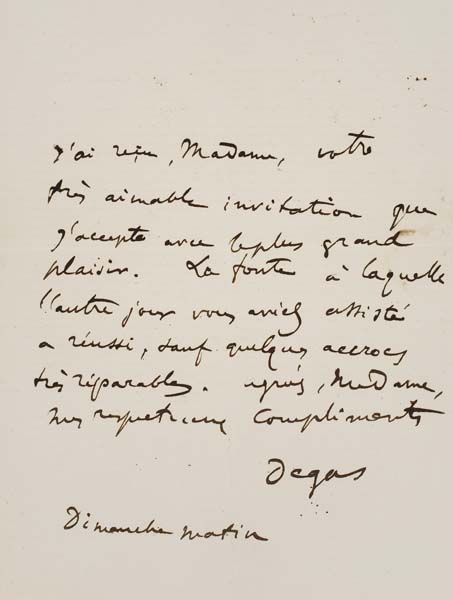 J'ai reçu, Madame, votre
très aimable invitation que
j'accepte avec le plus grand
plaisir. La fonte à laquelle
l'autre jour vous aviez assisté
a réussi, sauf quelques accrocs
très réparables. agréez, Madame,
mes respectueux compliments
Degas
Dimanche matin